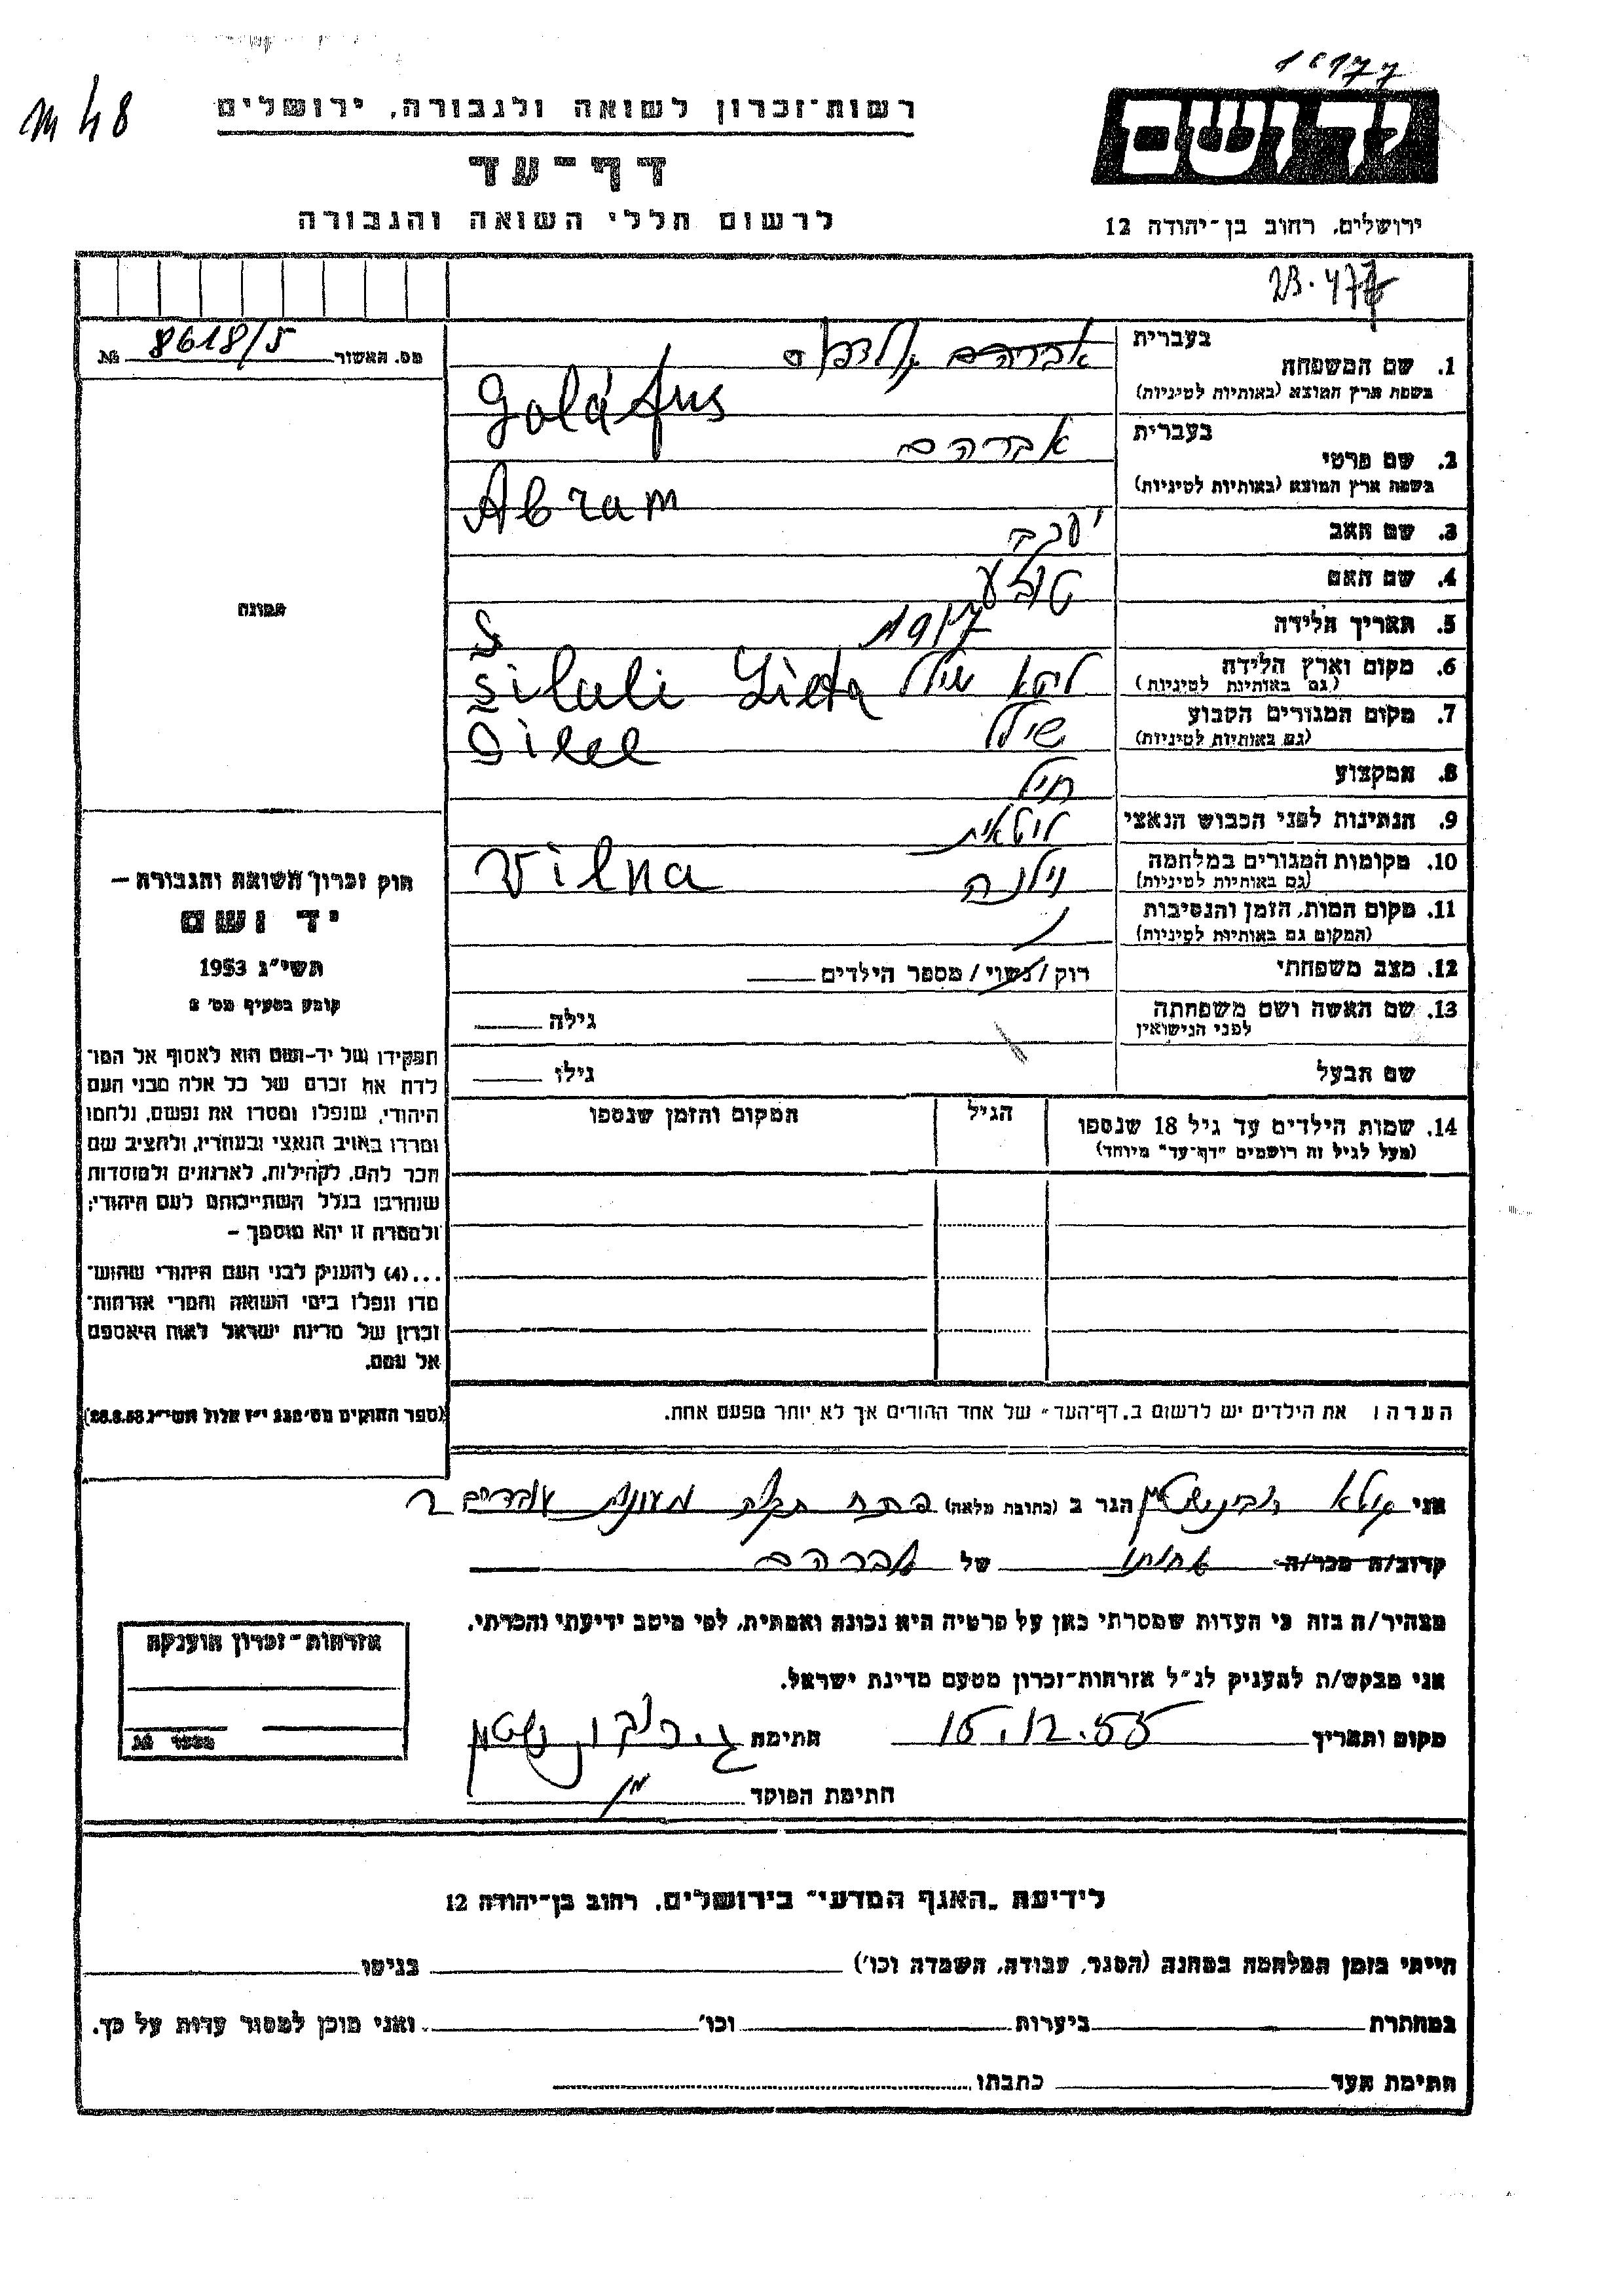 m 48
רשות-זכרון לשואה ולגבורה, ירושלים
דף-עד
לרשום חללי השואה והגבורה
יד ושם
ירושלים, רחוב בן-יהודה 12
מס. האשור № 8618/5
תמונה
1. שם המשפחה בעברית אברהם
בשפת ארץ המוצא (באותיות לטיניות) Goldfus
2. שם פרטי בעברית אברהם
בשפת ארץ המוצא (באותיות לטיניות) Abram
3. שם האב יעקב
4. שם האם
5. תאריך הלידה
6. מקום וארץ הלידה (גם באותיות לטיניות) ליטא Silali Lieta
7. מקום המגורים הקבוע (גם באותיות לטיניות) שילל Silel
8. המקצוע
9. הנתינות לפני הכבוש הנאצי ליטאית
10. מקומות המגורים במלחמה (גם באותיות לטיניות) וילנה Vilna
11. מקום המות, הזמן והנסיבות (המקום גם באותיות לטיניות)
12. מצב משפחתי רוק / נשוי / מספר הילדים
13. שם האשה ושם משפחתה לפני הנישואין גילה
שם הבעל גילו
14. שמות הילדים עד גיל 18 שנספו הגיל המקום והזמן שנספו
(מעל לגיל זה רושמים "דף-עד" מיוחד)
חוק זכרון השואה והגבורה —
יד ושם
תשי"ג 1953
קובע בסעיף מס' 2
תפקידו של יד-ושם הוא לאסוף אל המו-
לדת את זכרם של כל אלה מבני העם
היהודי, שנפלו ומסרו את נפשם, נלחמו
ומרדו באויב הנאצי ובעוזריו, ולהציב שם
וזכר להם, לקהילות, לארגונים ולמוסדות
שנחרבו בגלל השתייכותם לעם היהודי;
ולמטרה זו יהא מוסמך —
...(4) להעניק לבני העם היהודי שהוש-
מדו ונפלו בימי השואה והמרי אזרחות-
זכרון של מדינת ישראל לאות היאספם
אל עמם.
הערה: את הילדים יש לרשום ב„דף-העד" של אחד ההורים אך לא יותר מפעם אחת.
אני הגר ב (כתובת מלאה) פתח תקוה מעונות עובדים ב
קרוב/ה מכר/ה אחותו של אברהם
מצהיר/ה בזה כי העדות שמסרתי כאן על פרטיה היא נכונה ואמתית, לפי מיטב ידיעתי והכרתי.
אני מבקש/ת להעניק לנ"ל אזרחות-זכרון מטעם מדינת ישראל.
מקום ותאריך 15.12.55 חתימת
חתימת הפוקד
אזרחות-זכרון הוענקה
לידיעת „האגף המדעי" בירושלים, רחוב בן-יהודה 12
הייתי בזמן המלחמה במחנה (הסגר, עבודה, השמדה וכו') בגיטו
במחתרת ביערות וכו' ואני מוכן למסור עדות על כך.
חתימת העד כתבתו